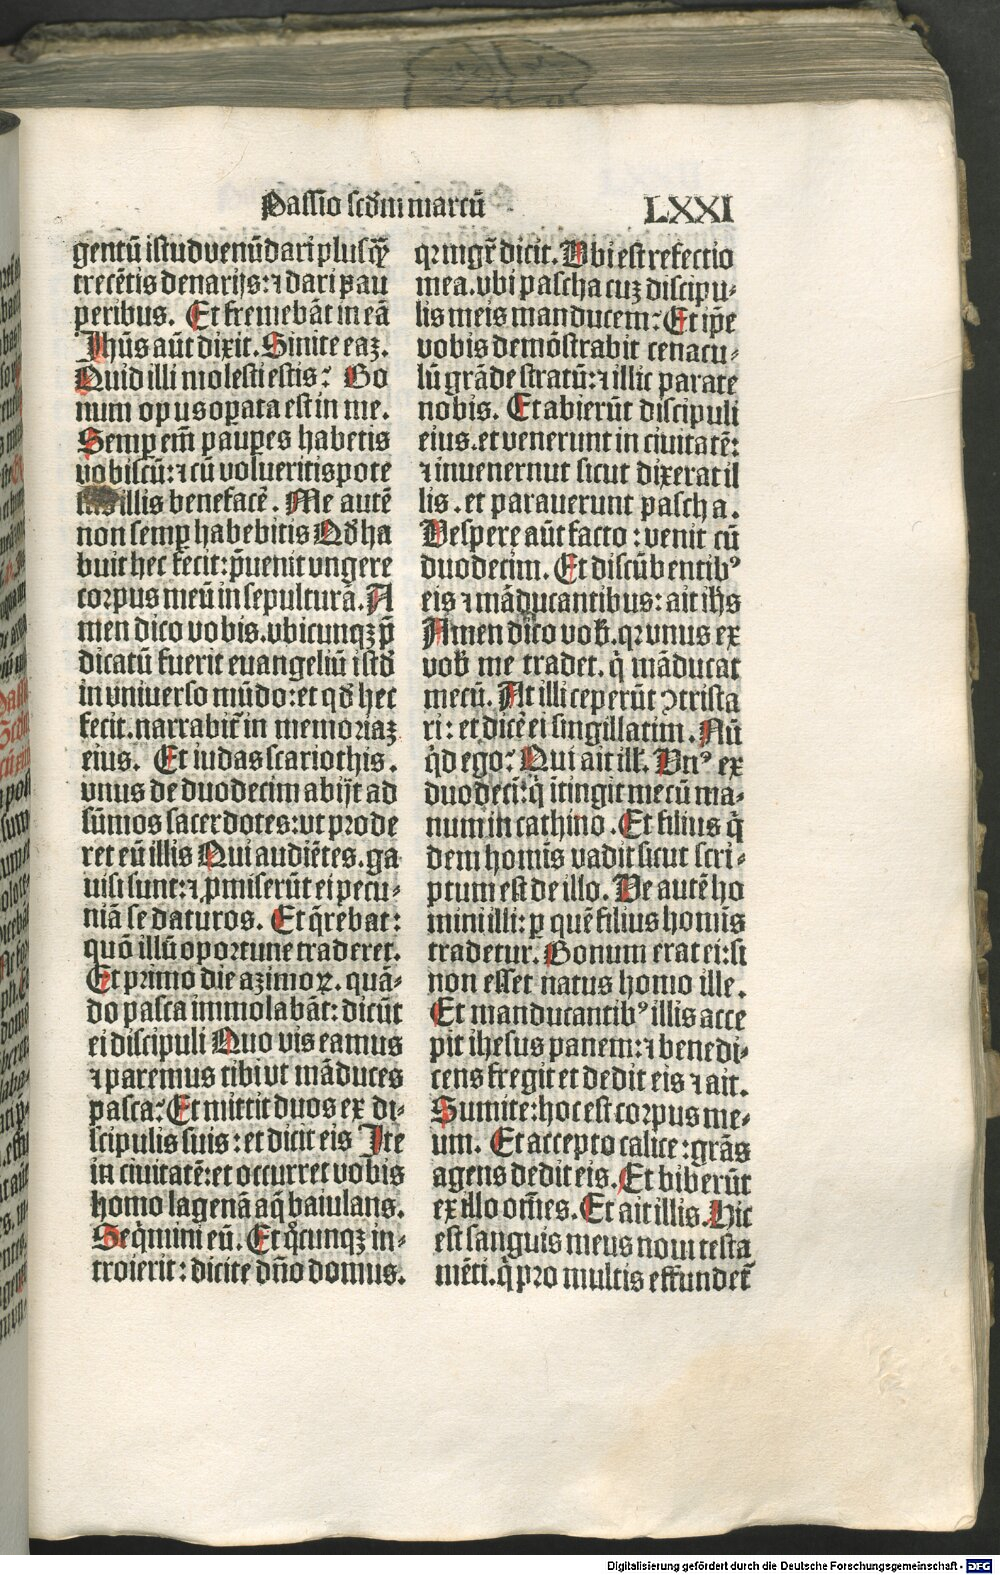 Passio scdm marcū
LXXI
gentū istud venūdari plusq̄
trecētis denarijs: ⁊ dari pau
peribus. Et fremebāt in eā
Jhūs aūt dixit. Sinite eaꝫ.
Quid illi molesti estis? Bo
num opus opata est in me.
Semp em̄ paupes habetis
vobiscū: ⁊ cū volueritis pote
illis benefacē. Me autē
non semp habebitis Qd ha
buit hec fecit: p̄uenit vngere
corpus meū in sepulturā. A
men dico vobis. vbicunqꝫ p̄
dicatū fuerit euangeliū istd
in vniuerso mūdo: et qd hec
fecit. narrabit᷑ in memoriaꝫ
eius. Et iudas scariothis.
vnus de duodecim abijt ad
sūmos sacerdotes: vt prode
ret eū illis Qui audiētes. ga
uisi sunt: ⁊ ꝓmiserūt ei pecu⸗
niā se daturos. Et q̄rebat:
quō illū oportune traderet.
Et primo die azimoꝝ. quā⸗
do pasca immolabāt: dicūt
ei discipuli Quo vis eamus
⁊ paremus tibi vt māduces
pasca? Et mittit duos ex di⸗
scipulis suis: et dicit eis Ite
in ciuitatē: et occurret vobis
homo lagenā aq̄ baiulans.
Seq̄mini eū. Et qͦcunqꝫ in⸗
troierit: dicite dn̄o domus.
qꝛ mgr̄ dicit. Vbi est refectio
mea. vbi pascha cuꝫ discipu⸗
lis meis manducem? Et ip̄e
vobis demōstrabit cenacu⸗
lū grāde stratū: ⁊ illic parate
nobis. Et abierūt discipuli
eius. et venerunt in ciuitatē:
⁊ inuenernut sicut dixerat il
lis. et parauerunt pascha.
Vespere aūt facto: venit cū
duodecim. Et discūbentibꝰ
eis ⁊ māducantibus: ait ihs
Amen dico vob̄. qꝛ vnus ex
vob̄ me tradet. q̄ māducat
mecū. At illi ceperūt ↄtrista
ri: et dicē ei singillatim. Nū
qd ego? Qui ait ill̄. Vnꝰ ex
duodeci: q̄ ītingit mecū ma⸗
num in cathino. Et filius q̄
dem homīs vadit sicut scri⸗
ptum est de illo. Ve autē ho
mini illi: ꝑ quē filius homīs
tradetur. Bonum erat ei: si
non esset natus homo ille.
Et manducantibꝰ illis acce
pit ihesus panem: ⁊ benedi⸗
cens fregit et dedit eis ⁊ ait.
Sumite: hoc est corpus me⸗
um. Et accepto calice: grās
agens dedit eis. Et biberūt
ex illo om̄es. Et ait illis. Hic
est sanguis meus noui testa
mēti. q̄ pro multis effundet᷑
Digitalisierung gefördert durch die Deutsche Forschungsgemeinschaft - DFG